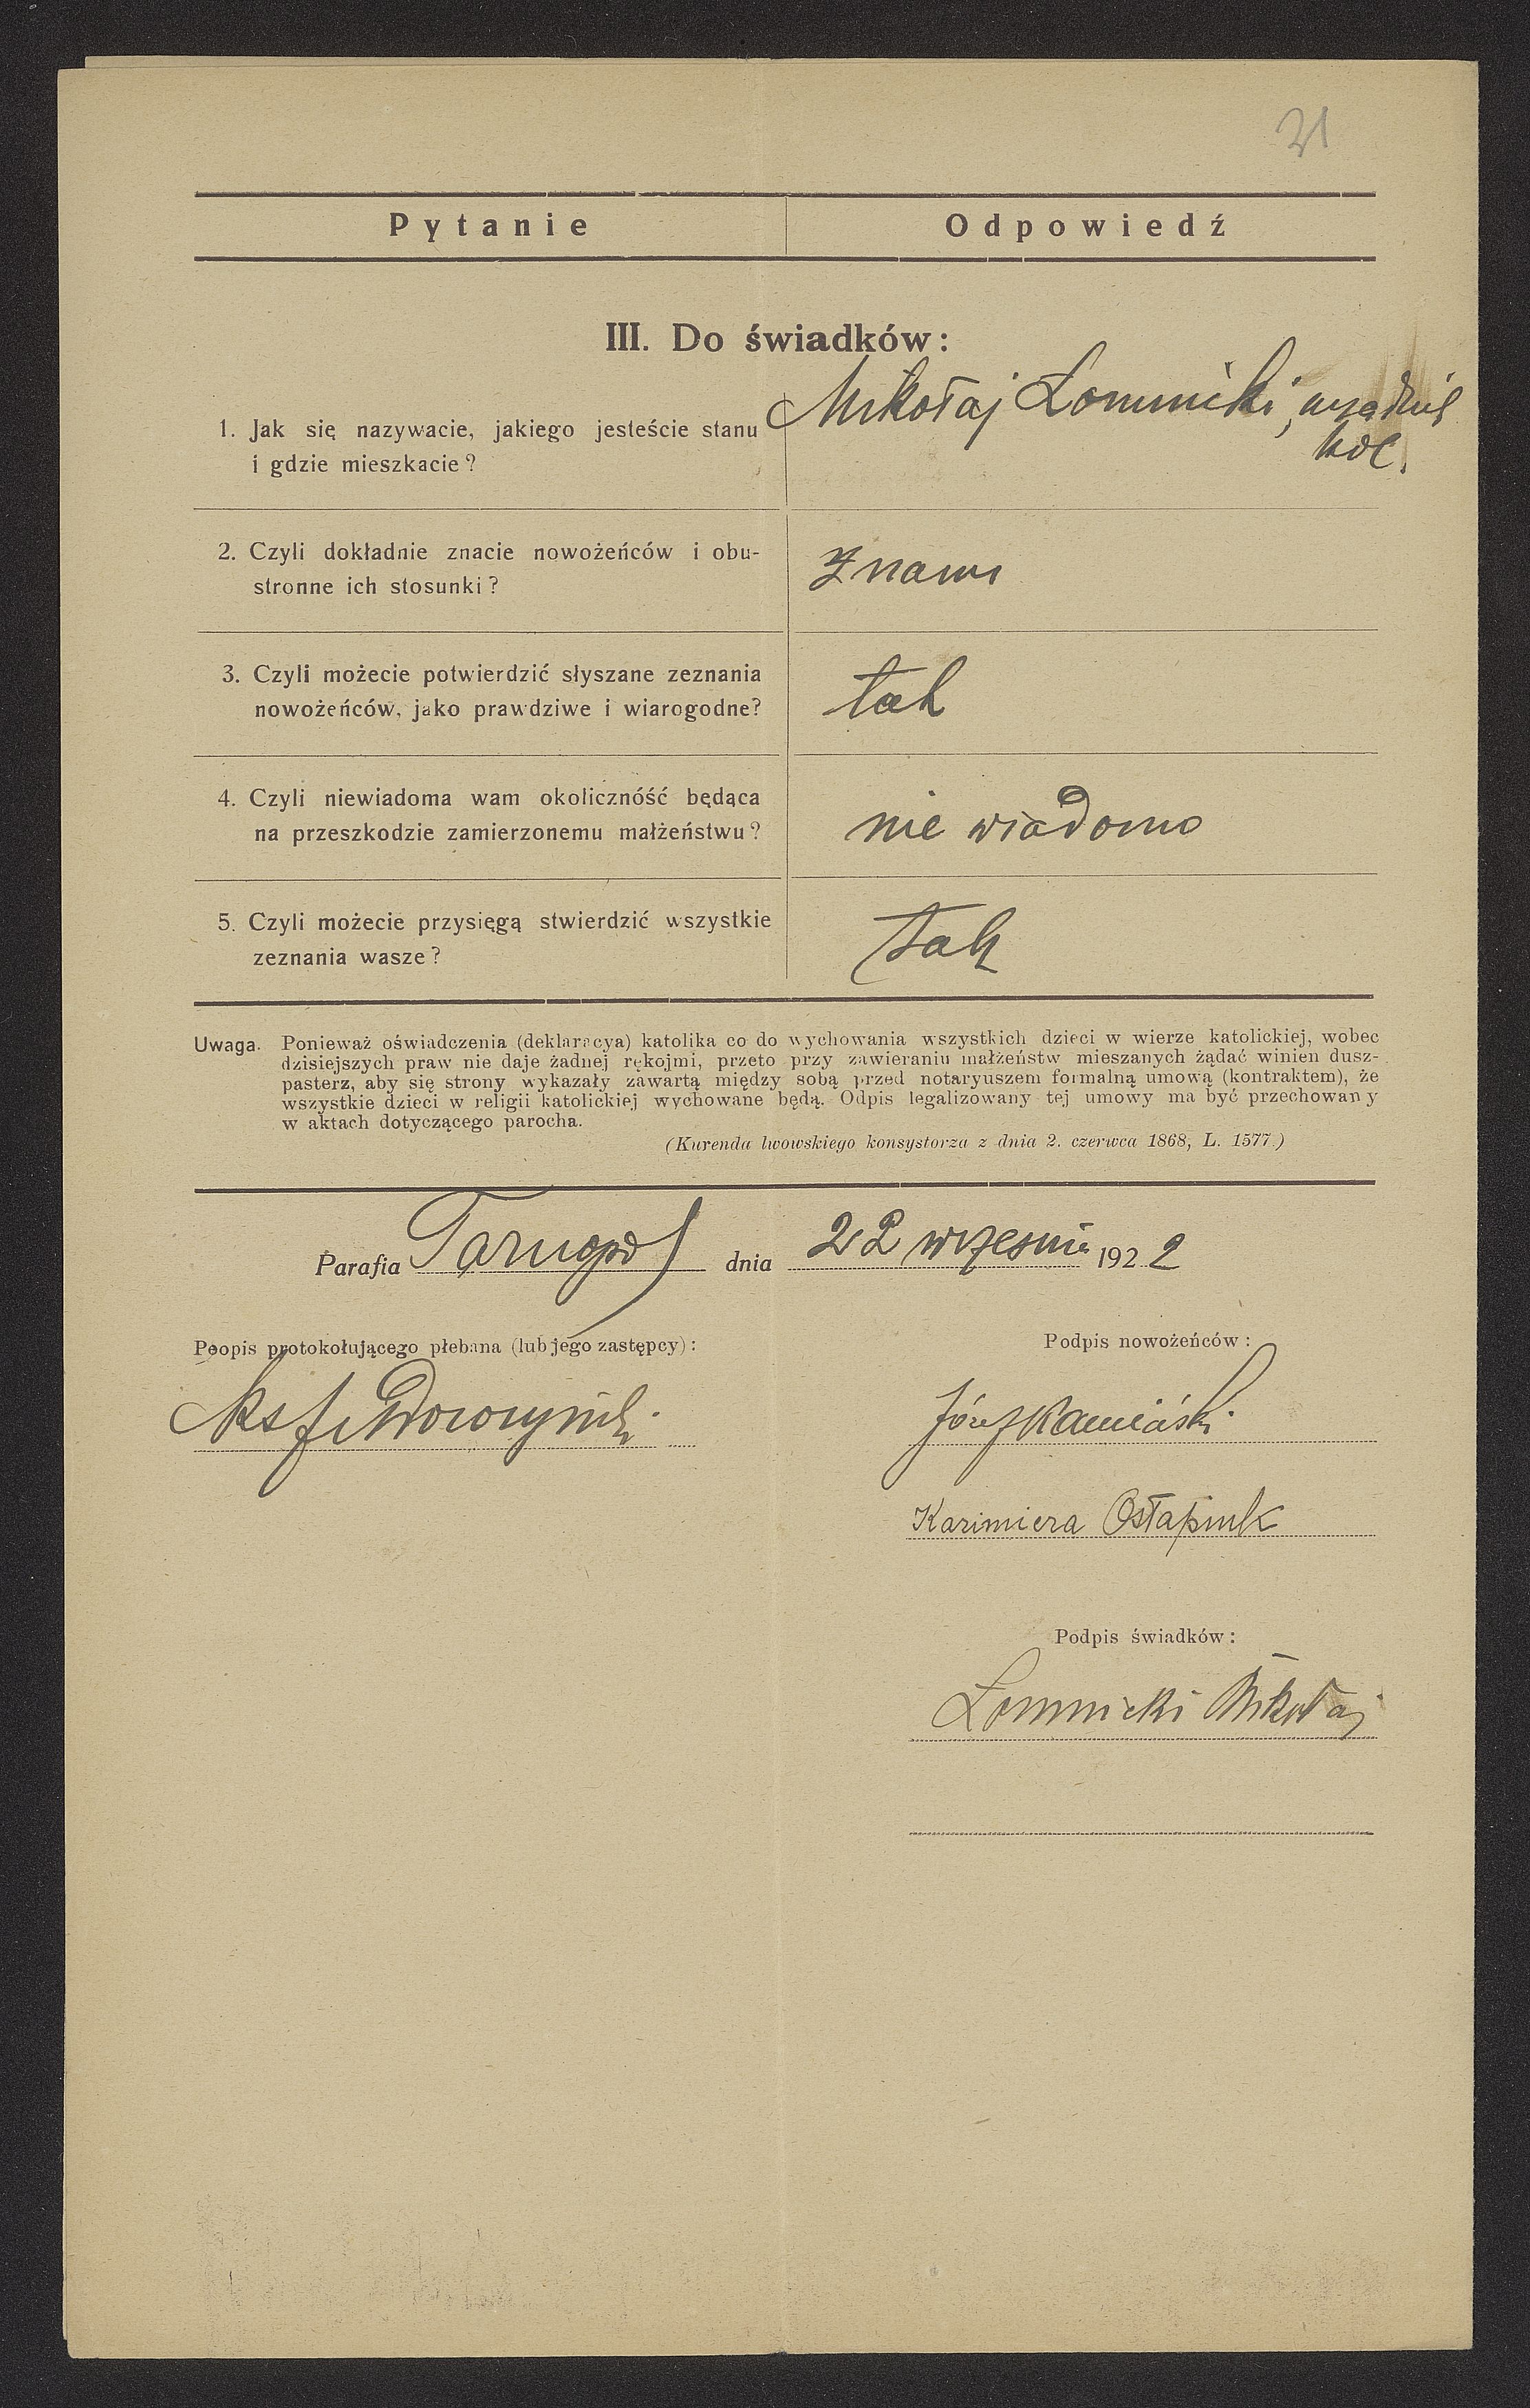 31
Pytanie Odpowiedź
III. Do świadków:
1. Jak się nazywacie, jakiego jesteście stanu
i gdzie mieszkacie?
Mikołaj Łomnicki, urzędnik
kol.
2. Czyli dokładnie znacie nowożeńców i obu-
stronne ich stosunki?
znam
3. Czyli możecie potwierdzić słyszane zeznania
nowożeńców, jako prawdziwe i wiarogodne?
tak
4. Czyli niewiadoma wam okolicznóść będąca
na przeszkodzie zamierzonemu małżeństwu?
nie wiadomo
5. Czyli możecie przysięgą stwierdzić wszystkie
zeznania wasze?
tak
Uwaga. Ponieważ oświadczenia (deklaracya) katolika co do wychowania wszystkich dzieci w wierze katolickiej, wobec
dzisiejszych praw nie daje żadnej rękojmi, przeto przy zawieraniu małżeństw mieszanych żądać winien dusz-
pasterz, aby się strony wykazały zawartą między sobą przed notaryuszem formalną umową (kontraktem), że
wszystkie dzieci w religii katolickiej wychowane będą. Odpis legalizowany tej umowy ma być przechowany
w aktach dotyczącego parocha.
(Kurenda lwowskiego konsystorza z dnia 2. czerwca 1868, L. 1577.)
Parafia Tarnopol dnia 22 wrzesnia 1922
Popis protokołującego plebana (lub jego zastępcy):
Ks
Podpis nowożeńców:
Józef Kamiński
Kazimiera Ostapiuk
Podpis świadków:
Łomnicki Mikołaj